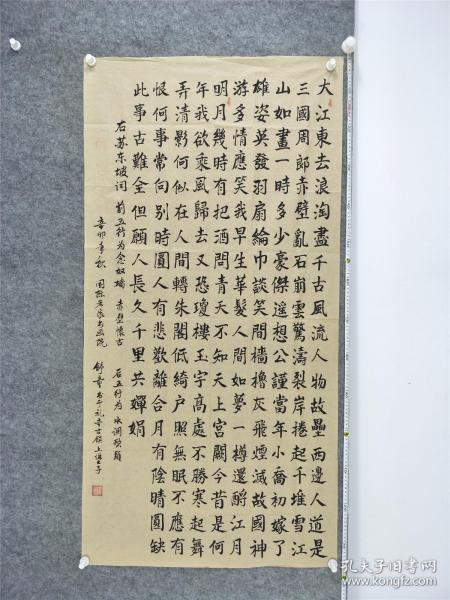 大江東去浪淘盡千古風流人物故壘西邊人道是
三國周郎赤壁亂石崩雲驚濤裂岸捲起千堆雪江
山如畫一時多少豪傑遥想公謹當年小喬初嫁了
雄姿英發羽扇綸巾談笑間檣櫓灰飛煙滅故國神
游多情應笑我早生華髮人間如夢一樽還酹江月
明月幾時有把酒問青天不知天上宮闕今昔是何
年我欲乘風歸去又恐瓊樓玉宇高處不勝寒起舞
弄清影何似在人間轉朱閣低綺户照無眠不應有
恨何事常向別時圓人有悲歡離合月有陰晴圓缺
此事古難全但願人長久千里共嬋娟
右苏东坡词 前五行为念奴娇 赤壁怀古 后五行为水调歌頭
辛卯年秋 国际 书画院
孔夫子旧书网
book.kongfz.com